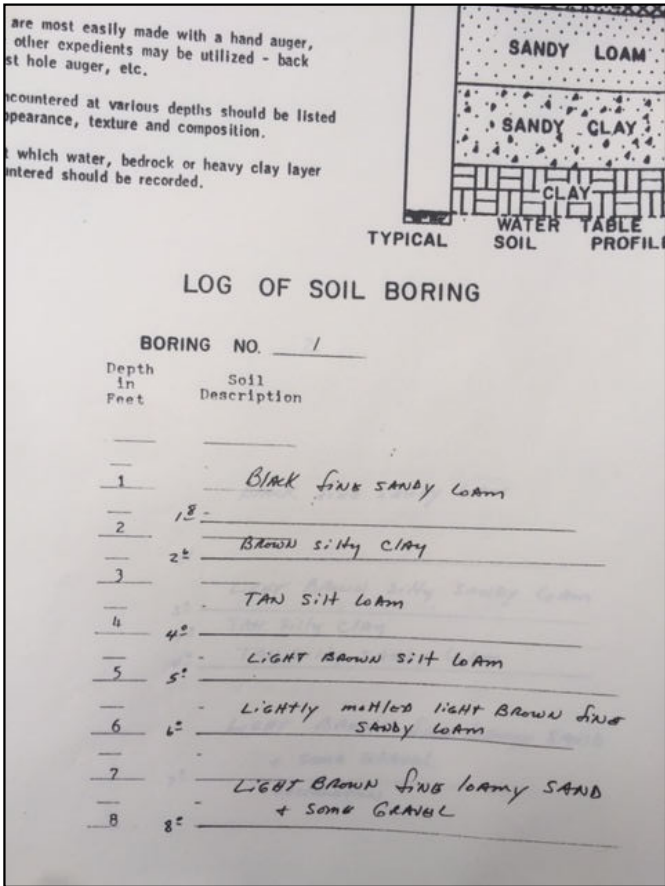 are most easily made with a hand auger,
other expedients may be utilized - back
st hole auger, etc.
ncountered at various depths should be listed
ppearance, texture and composition.
t which water, bedrock or heavy clay layer
untered should be recorded.
SANDY LOAM
SANDY CLAY
CLAY
WATER TABLE
TYPICAL SOIL PROFILE
LOG OF SOIL BORING
BORING NO. 1
Depth
in
Feet
Soil
Description
1 Black fine sandy loam
2 1.8
2.6 Brown silty clay
3
TAN silt loam
4 4.0
Light Brown silt loam
5 5.0
Lightly mottled light Brown fine
6 6.0 sandy loam
7
Light Brown fine loamy SAND
+ some GRAVEL
8 8.0